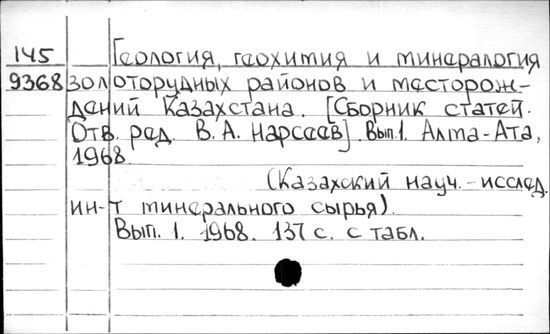 145 Геология, геохимия и минералогия
9368 золоторудных районов и месторож-
дений Казахстана. [Сборник статей.
Отв. ред. В. А. Нарсеев]. Вып.1. Алма-Ата,
1968.
(Казахский науч.-исслед.
ин-т минерального сырья).
Вып. 1. 1968. 137 с. с табл.